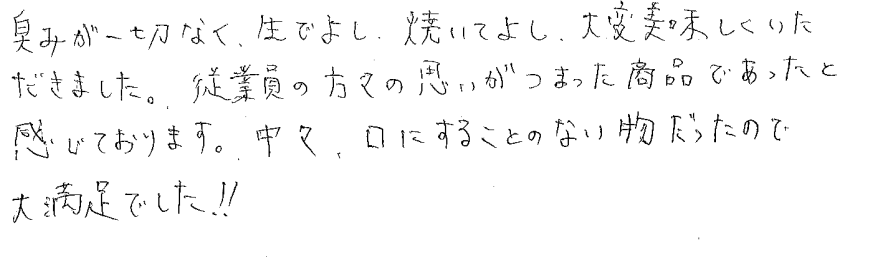 臭みが一切なく、生でよし、焼いてよし、大変美味しくいた
だきました。従業員の方々の思いがつまった商品であったと
感じております。中々、口にすることのない物だったので
大満足でした!!